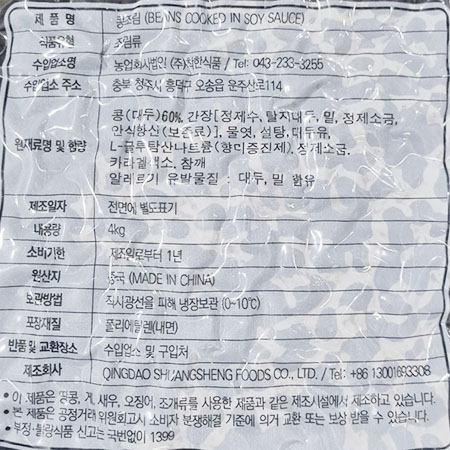 제 품 명 콩조림 (BEANS COOKED IN SOY SAUCE)
식품유형 조림류
수입업소명 농업회사법인 (주)착한식품 / Tel: 043-233-3255
수입업소 주소 충북 청주시 흥덕구 오송읍 운주산로114
원재료명 및 함량 콩(대두)60%, 간장[정제수, 탈지대두, 밀, 정제소금,
안식향산(보존료)], 물엿, 설탕, 대두유,
L-글루탐산나트륨(향미증진제), 정제소금,
카라멜색소, 참깨
알레르기 유발물질 : 대두, 밀 함유
제조일자 전면에 별도표기
내용량 4kg
소비기한 제조일로부터 1년
원산지 중국 (MADE IN CHINA)
보관방법 직사광선을 피해 냉장보관 (0~10℃)
포장재질 폴리에틸렌(내면)
반품 및 교환장소 수입업소 및 구입처
제조회사 QINGDAO SHUANGSHENG FOODS CO., LTD./ Tel: +86 13001693308
• 이 제품은 땅콩, 게, 새우, 오징어, 조개류를 사용한 제품과 같은 제조시설에서 제조하고 있습니다.
• 본 제품은 공정거래 위원회고시 소비자 분쟁해결 기준에 의거 교환 또는 보상 받을 수 있습니다.
• 부정·불량식품 신고는 국번없이 1399